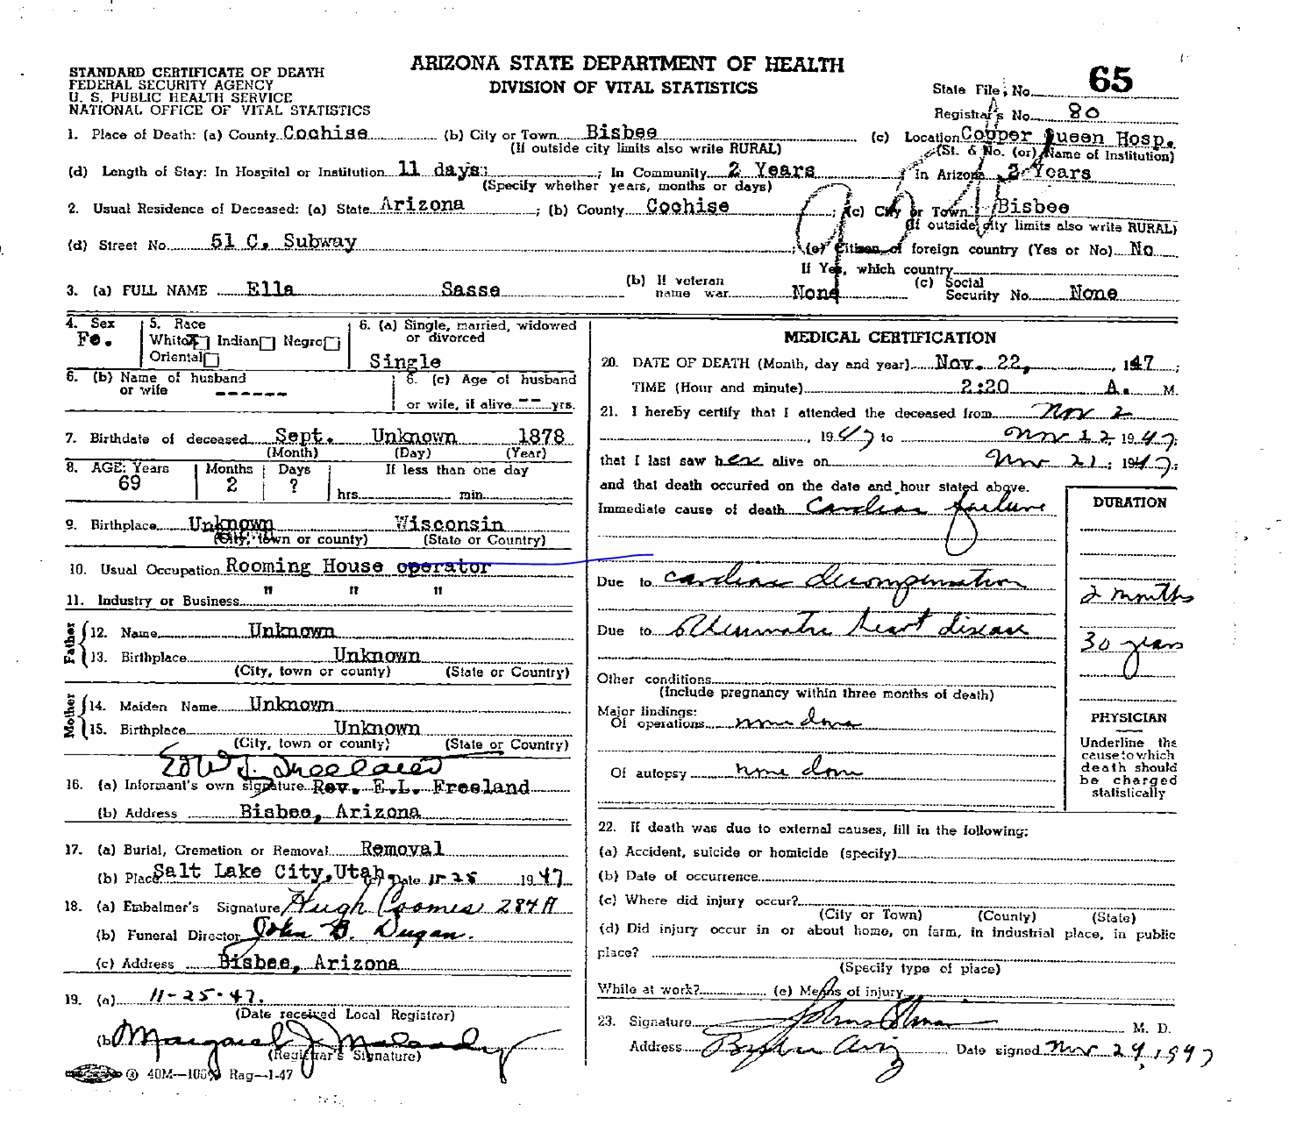 ARIZONA STATE DEPARTMENT OF HEALTH
DIVISION OF VITAL STATISTICS
STANDARD CERTIFICATE OF DEATH
FEDERAL SECURITY AGENCY
U. S. PUBLIC HEALTH SERVICE
NATIONAL OFFICE OF VITAL STATISTICS
State File No. 65
Registrar's No. 80
1. Place of Death: (a) County Cochise (b) City or Town Bisbee (c) Location Copper Queen Hosp.
(If outside city limits also write RURAL) (St. & No. (or) Name of Institution)
(d) Length of Stay: In Hospital or Institution 11 days; In Community 2 Years In Arizona 2 Years
(Specify whether years, months or days)
2. Usual Residence of Deceased: (a) State Arizona; (b) County Cochise; (c) City or Town Bisbee
(If outside city limits also write RURAL)
(d) Street No. 51 C. Subway; (e) Citizen of foreign country (Yes or No) No
If Yes, which country
3. (a) FULL NAME Ella Sasse (b) If veteran name war None (c) Social Security No. None
4. Sex Fe.
5. Race White X Indian Negro Oriental
6. (a) Single, married, widowed or divorced Single
6. (b) Name of husband or wife ------
6. (c) Age of husband or wife, if alive -- yrs.
7. Birthdate of deceased Sept. Unknown 1878
(Month) (Day) (Year)
8. AGE: Years Months Days If less than one day
69 2 ? hrs. min.
9. Birthplace Unknown Wisconsin
(City, town or county) (State or Country)
10. Usual Occupation Rooming House operator
11. Industry or Business " " "
Father
12. Name Unknown
13. Birthplace Unknown
(City, town or county) (State or Country)
Mother
14. Maiden Name Unknown
15. Birthplace Unknown
(City, town or county) (State or Country)
16. (a) Informant's own signature Rev. E.L. Freeland
(b) Address Bisbee, Arizona
17. (a) Burial, Cremation or Removal Removal
(b) Place Salt Lake City, Utah (c) Date 11-25 1947
18. (a) Embalmer's Signature Hugh Coomes 284A
(b) Funeral Director John B. Dugan.
(c) Address Bisbee, Arizona
19. (a) 11-25-47.
(Date received Local Registrar)
(b) Margaret J.
(Registrar's Signature)
40M—100% Rag—1-47
MEDICAL CERTIFICATION
20. DATE OF DEATH (Month, day and year) Nov. 22, 1947;
TIME (Hour and minute) 2:20 A. M.
21. I hereby certify that I attended the deceased from Nov 2
, 1947 to Nov 22 1947;
that I last saw her alive on Nov 21, 1947;
and that death occurred on the date and hour stated above.
DURATION
Immediate cause of death Cardiac failure
Due to cardiac decompensation 2 months
Due to Rheumatic heart disease 30 years
Other conditions
(Include pregnancy within three months of death)
Major findings:
Of operations none done
Of autopsy none done
PHYSICIAN
Underline the
cause to which
death should
be charged
statistically
22. If death was due to external causes, fill in the following:
(a) Accident, suicide or homicide (specify)
(b) Date of occurrence
(c) Where did injury occur?
(City or Town) (County) (State)
(d) Did injury occur in or about home, on farm, in industrial place, in public
place?
(Specify type of place)
While at work? (e) Means of injury
23. Signature M. D.
Address Bisbee Ariz Date signed Nov 24, 1947